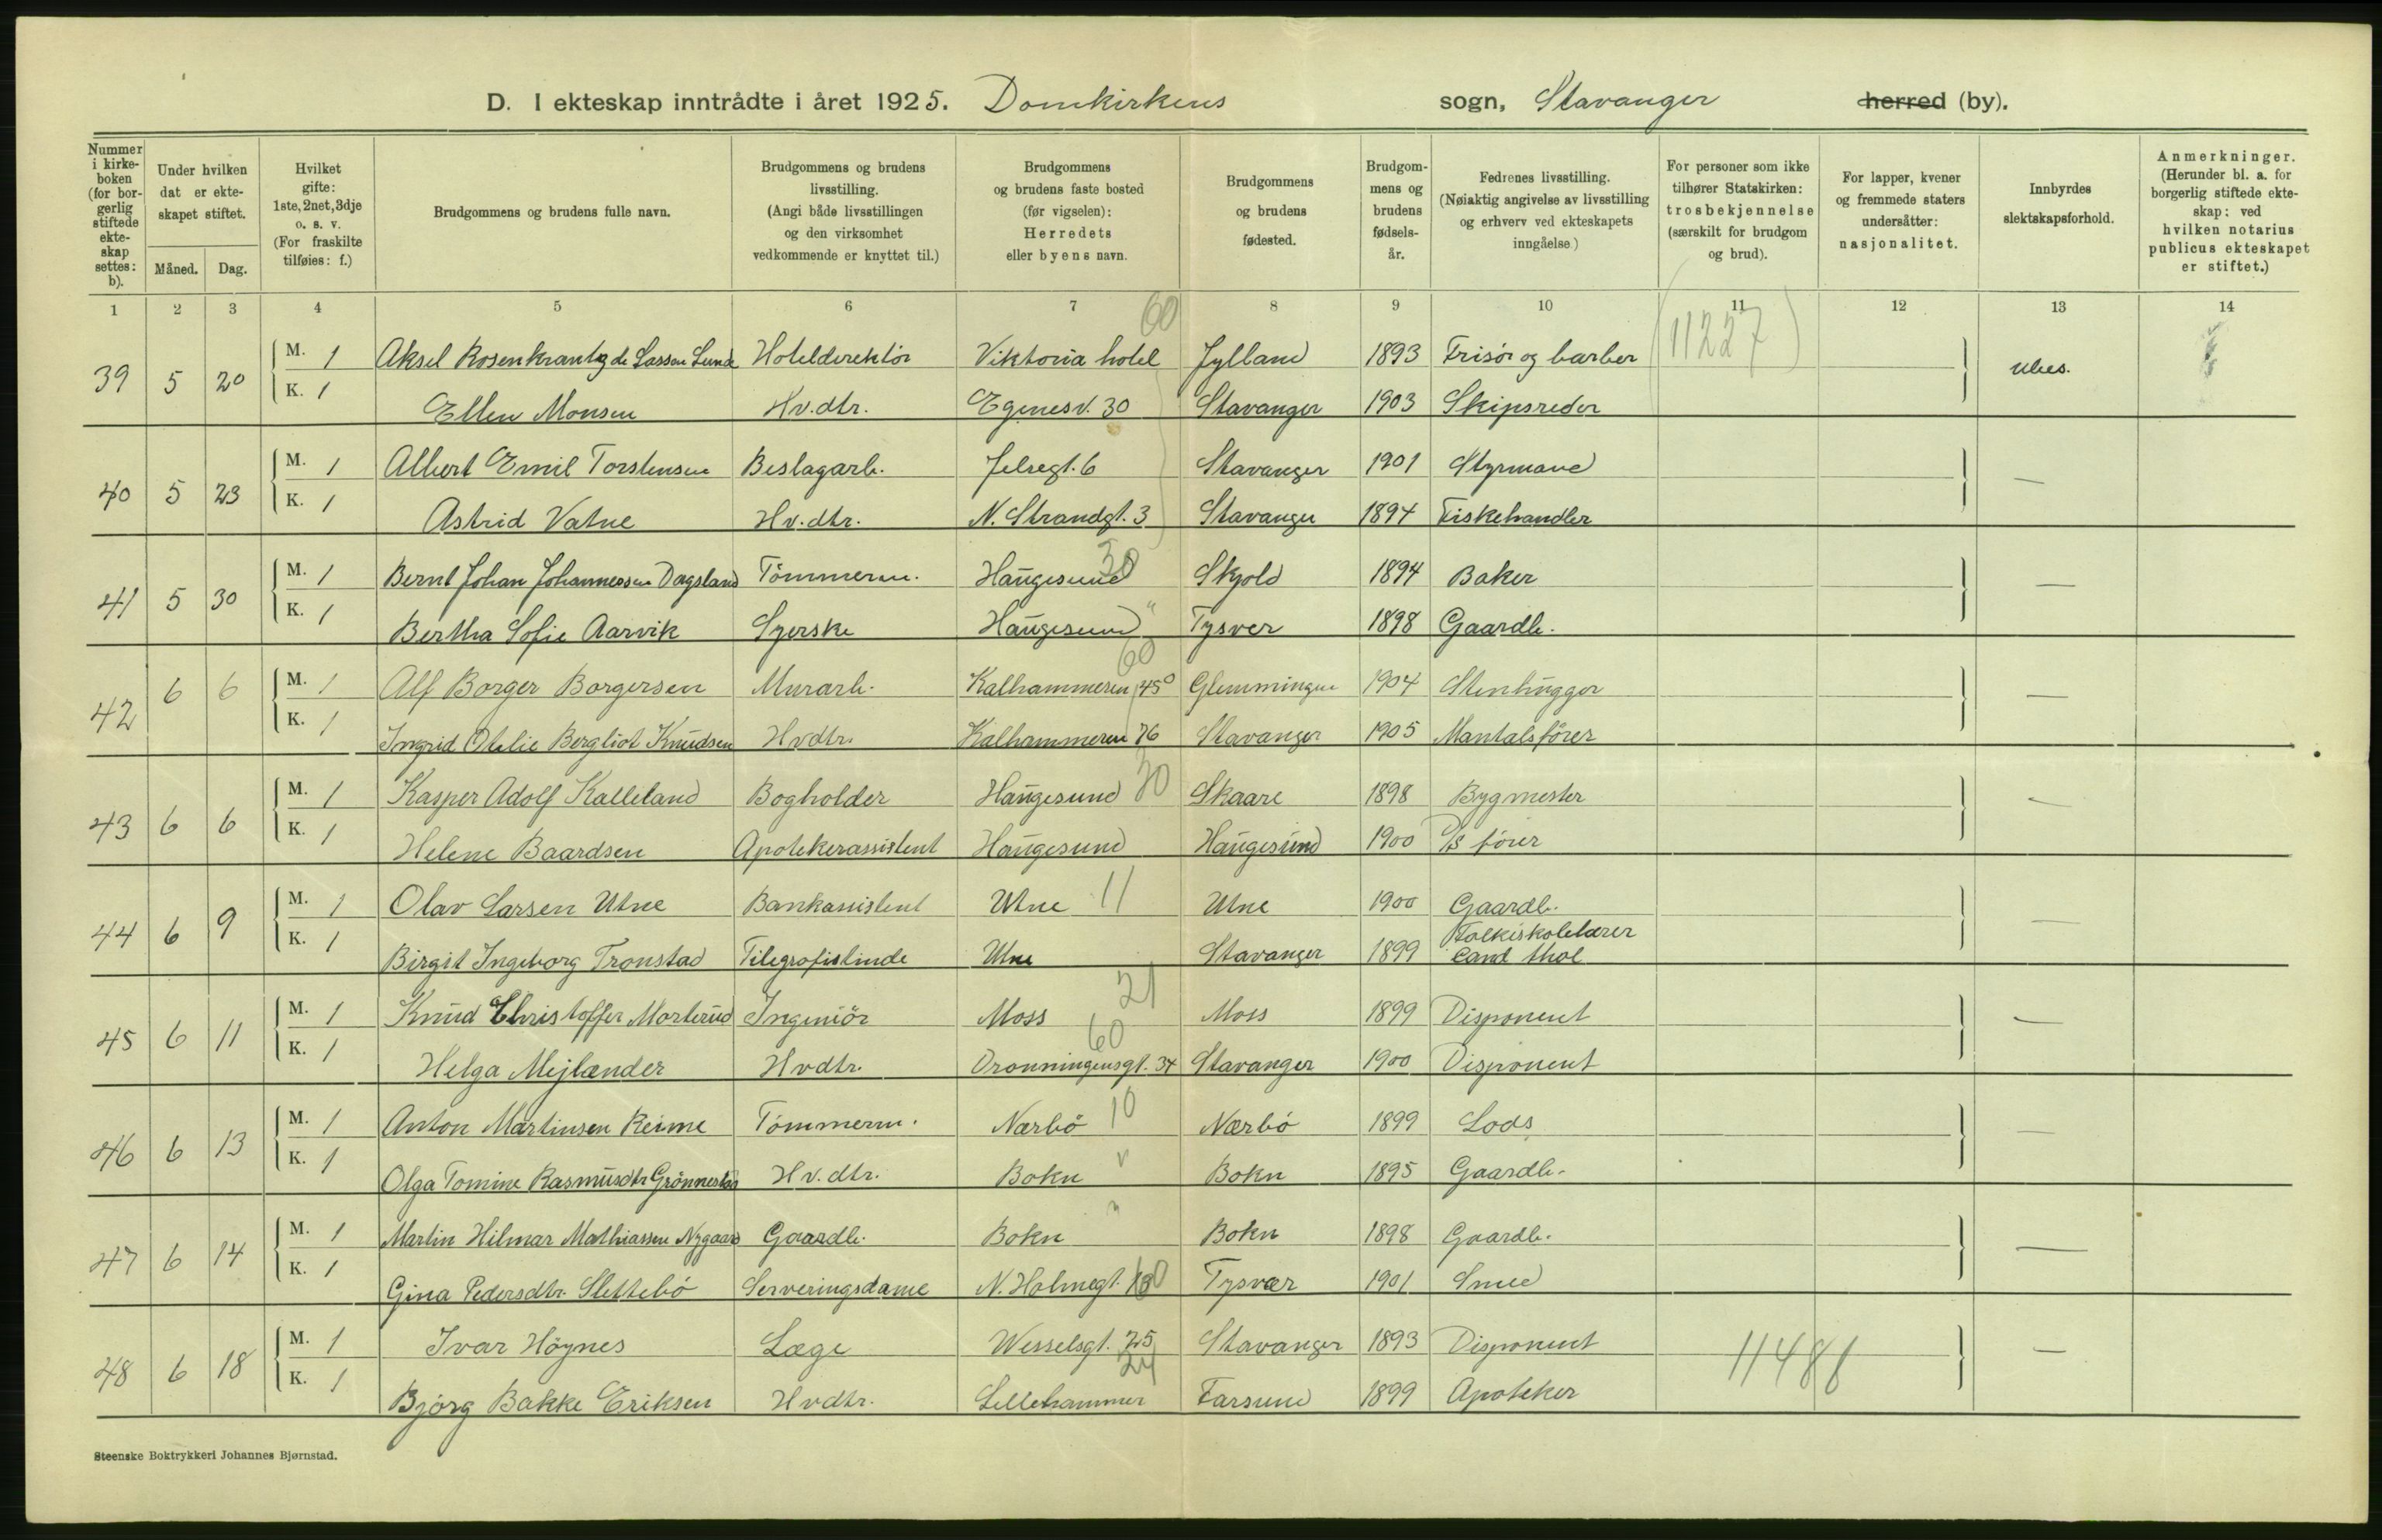 D. I ekteskap inntrådte i året 1925. Domkirkens sogn, Stavanger herred (by).
Nummer i kirkeboken (for borgerlig stiftede ekteskap settes: b).
Under hvilken dat er ekteskapet stiftet.
Måned. Dag.
Hvilket gifte: 1ste, 2net, 3dje o. s. v. (For fraskilte tilføies: f.)
Brudgommens og brudens fulle navn.
Brudgommens og brudens livsstilling. (Angi både livsstillingen og den virksomhet vedkommende er knyttet til.)
Brudgommens og brudens faste bosted (før vigselen): Herredets eller byens navn.
Brudgommens og brudens fødested.
Brudgommens og brudens fødselsår.
Fedrenes livsstilling. (Nøiaktig angivelse av livsstilling og erhverv ved ekteskapets inngåelse)
For personer som ikke tilhører Statskirken: trosbekjennelse (særskilt for brudgom og brud).
For lapper, kvener og fremmede staters undersåtter: nasjonalitet.
Innbyrdes slektskapsforhold.
Anmerkninger. (Herunder bl. a. for borgerlig stiftede ekteskap: ved hvilken notarius publicus ekteskapet er stiftet.)
1 2 3 4 5 6 7 8 9 10 11 12 13 14
60
39 5 20 M. 1 Aksel Rosenkrantz de Lasson Lunde Hoteldirektör Viktoria hotel Jylland 1893 Frisör og barber (11227)
K. 1 Ellen Monsen Hv.dtr. Egenesv. 30 Stavanger 1903 Skipsreder
40 5 23 M. 1 Albert Emil Torstensen Beslagarb. Jelsegt. 6 Stavanger 1901 Styrmand —
K. 1 Astrid Vatne Hv.dtr. N. Strandgt. 3 Stavanger 1894 Fiskehandler
41 5 30 M. 1 Bernt Johan Johannessen Dagsland Tömmerm. Haugesund 30 Skjold 1894 Baker —
K. 1 Bertha Sofie Aarvik Syerske Haugesund " Tysver 1898 Gaardb.
60
42 6 6 M. 1 Alf Borger Borgersen Murarb. Kalhammeren 45 Glemmingen 1904 Stenhugger —
K. 1 Ingrid Otelie Bergliot Knudsen Hvdtr. Kalhammeren 76 Stavanger 1905 Mantalsförer
43 6 6 M. 1 Kasper Adolf Kalleland Bogholder Haugesund 30 Skaare 1898 Bygmester —
K. 1 Helene Baardsen Apotekerassistent Haugesund Haugesund 1900 D/S förer
44 6 9 M. 1 Olav Larsen Utne Bankassistent Utne 11 Utne 1900 Gaardb. —
K. 1 Birgit Ingeborg Tronstad Telegrafistinde Utne Stavanger 1899 Folkeskolelærer
Cand theol
21
45 6 11 M. 1 Knud Christoffer Morterud Ingeniör Moss Moss 1899 Disponent —
60
K. 1 Helga Mejlænder Hvdtr. Dronningensgt. 34 Stavanger 1900 Disponent
46 6 13 M. 1 Anton Martinsen Reime Tömmerm. Nærbö 10 Nærbö 1899 Lods —
K. 1 Olga Tomine Rasmusdtr Grönnestad Hv.dtr. Bokn " Bokn 1895 Gaardb.
47 6 14 M. 1 Martin Hilmar Mathiassen Nygaard Gaardb. Bokn " Bokn 1898 Gaardb. —
K. 1 Gina Pedersdtr. Slettebö Serveringsdame N. Holmegt. Tysvær 1901 Smed
48 6 18 M. 1 Ivar Höynes Læge Wesselsgt. 25 Stavanger 1893 Disponent —
K. 1 Björg Bakke Eriksen Hvdtr. Lillehammer 24 Farsund 1899 Apoteker
Steenske Boktrykkeri Johannes Bjørnstad.